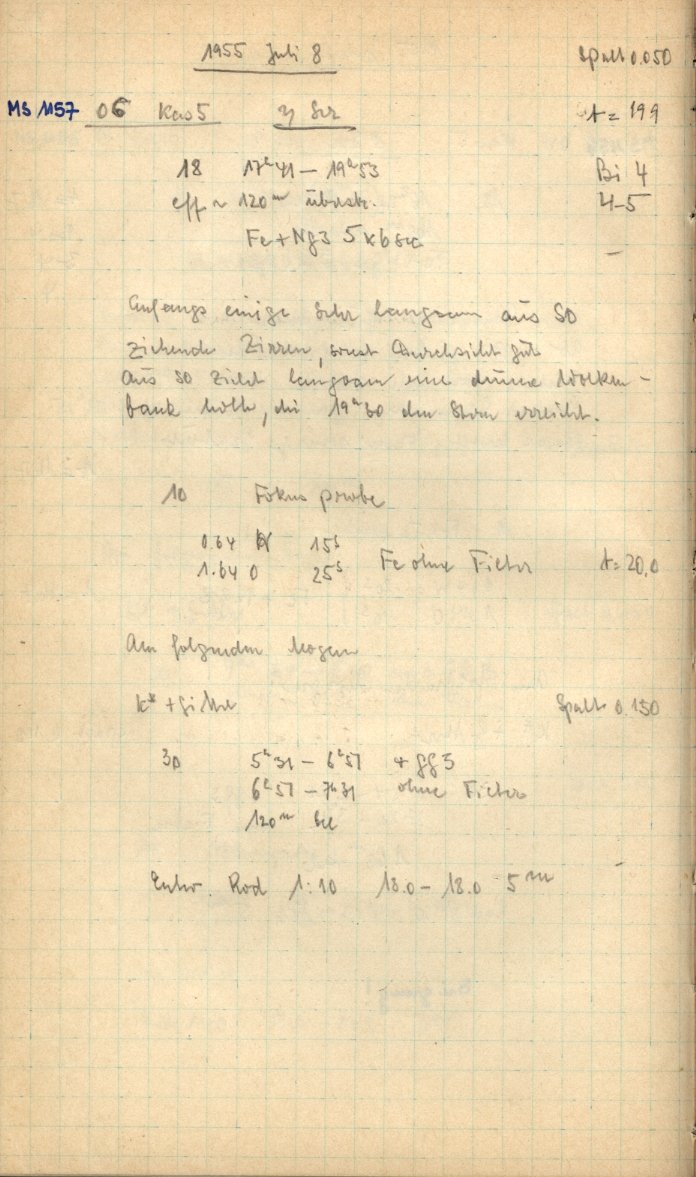 1955 Juli 8 Spalt 0.050
MS 1157 06 Kas 5 η t = 19.9
18 17h41 – 19h53 Bi 4
eff ~ 120m überstr. 4-5
Fe + Ng3 5 x 6 sec
Anfangs einige sehr langsam aus SO
ziehende Zirren, sonst Durchsicht gut
Aus SO zieht langsam eine dünne Wolken-
bank hoch, die 19h30 den Stern erreicht.
10 Fokusprobe
0.64 15s
1.64 0 25s Fe ohne Filter t = 20,0
Am folgenden Morgen
+ Gitter Spalt 0.150
30 5h31 – 6h57 + gg3
6h57 – 7h31 ohne Filter
120m bel
Entw. Rod 1:10 18.0 – 18.0 5m